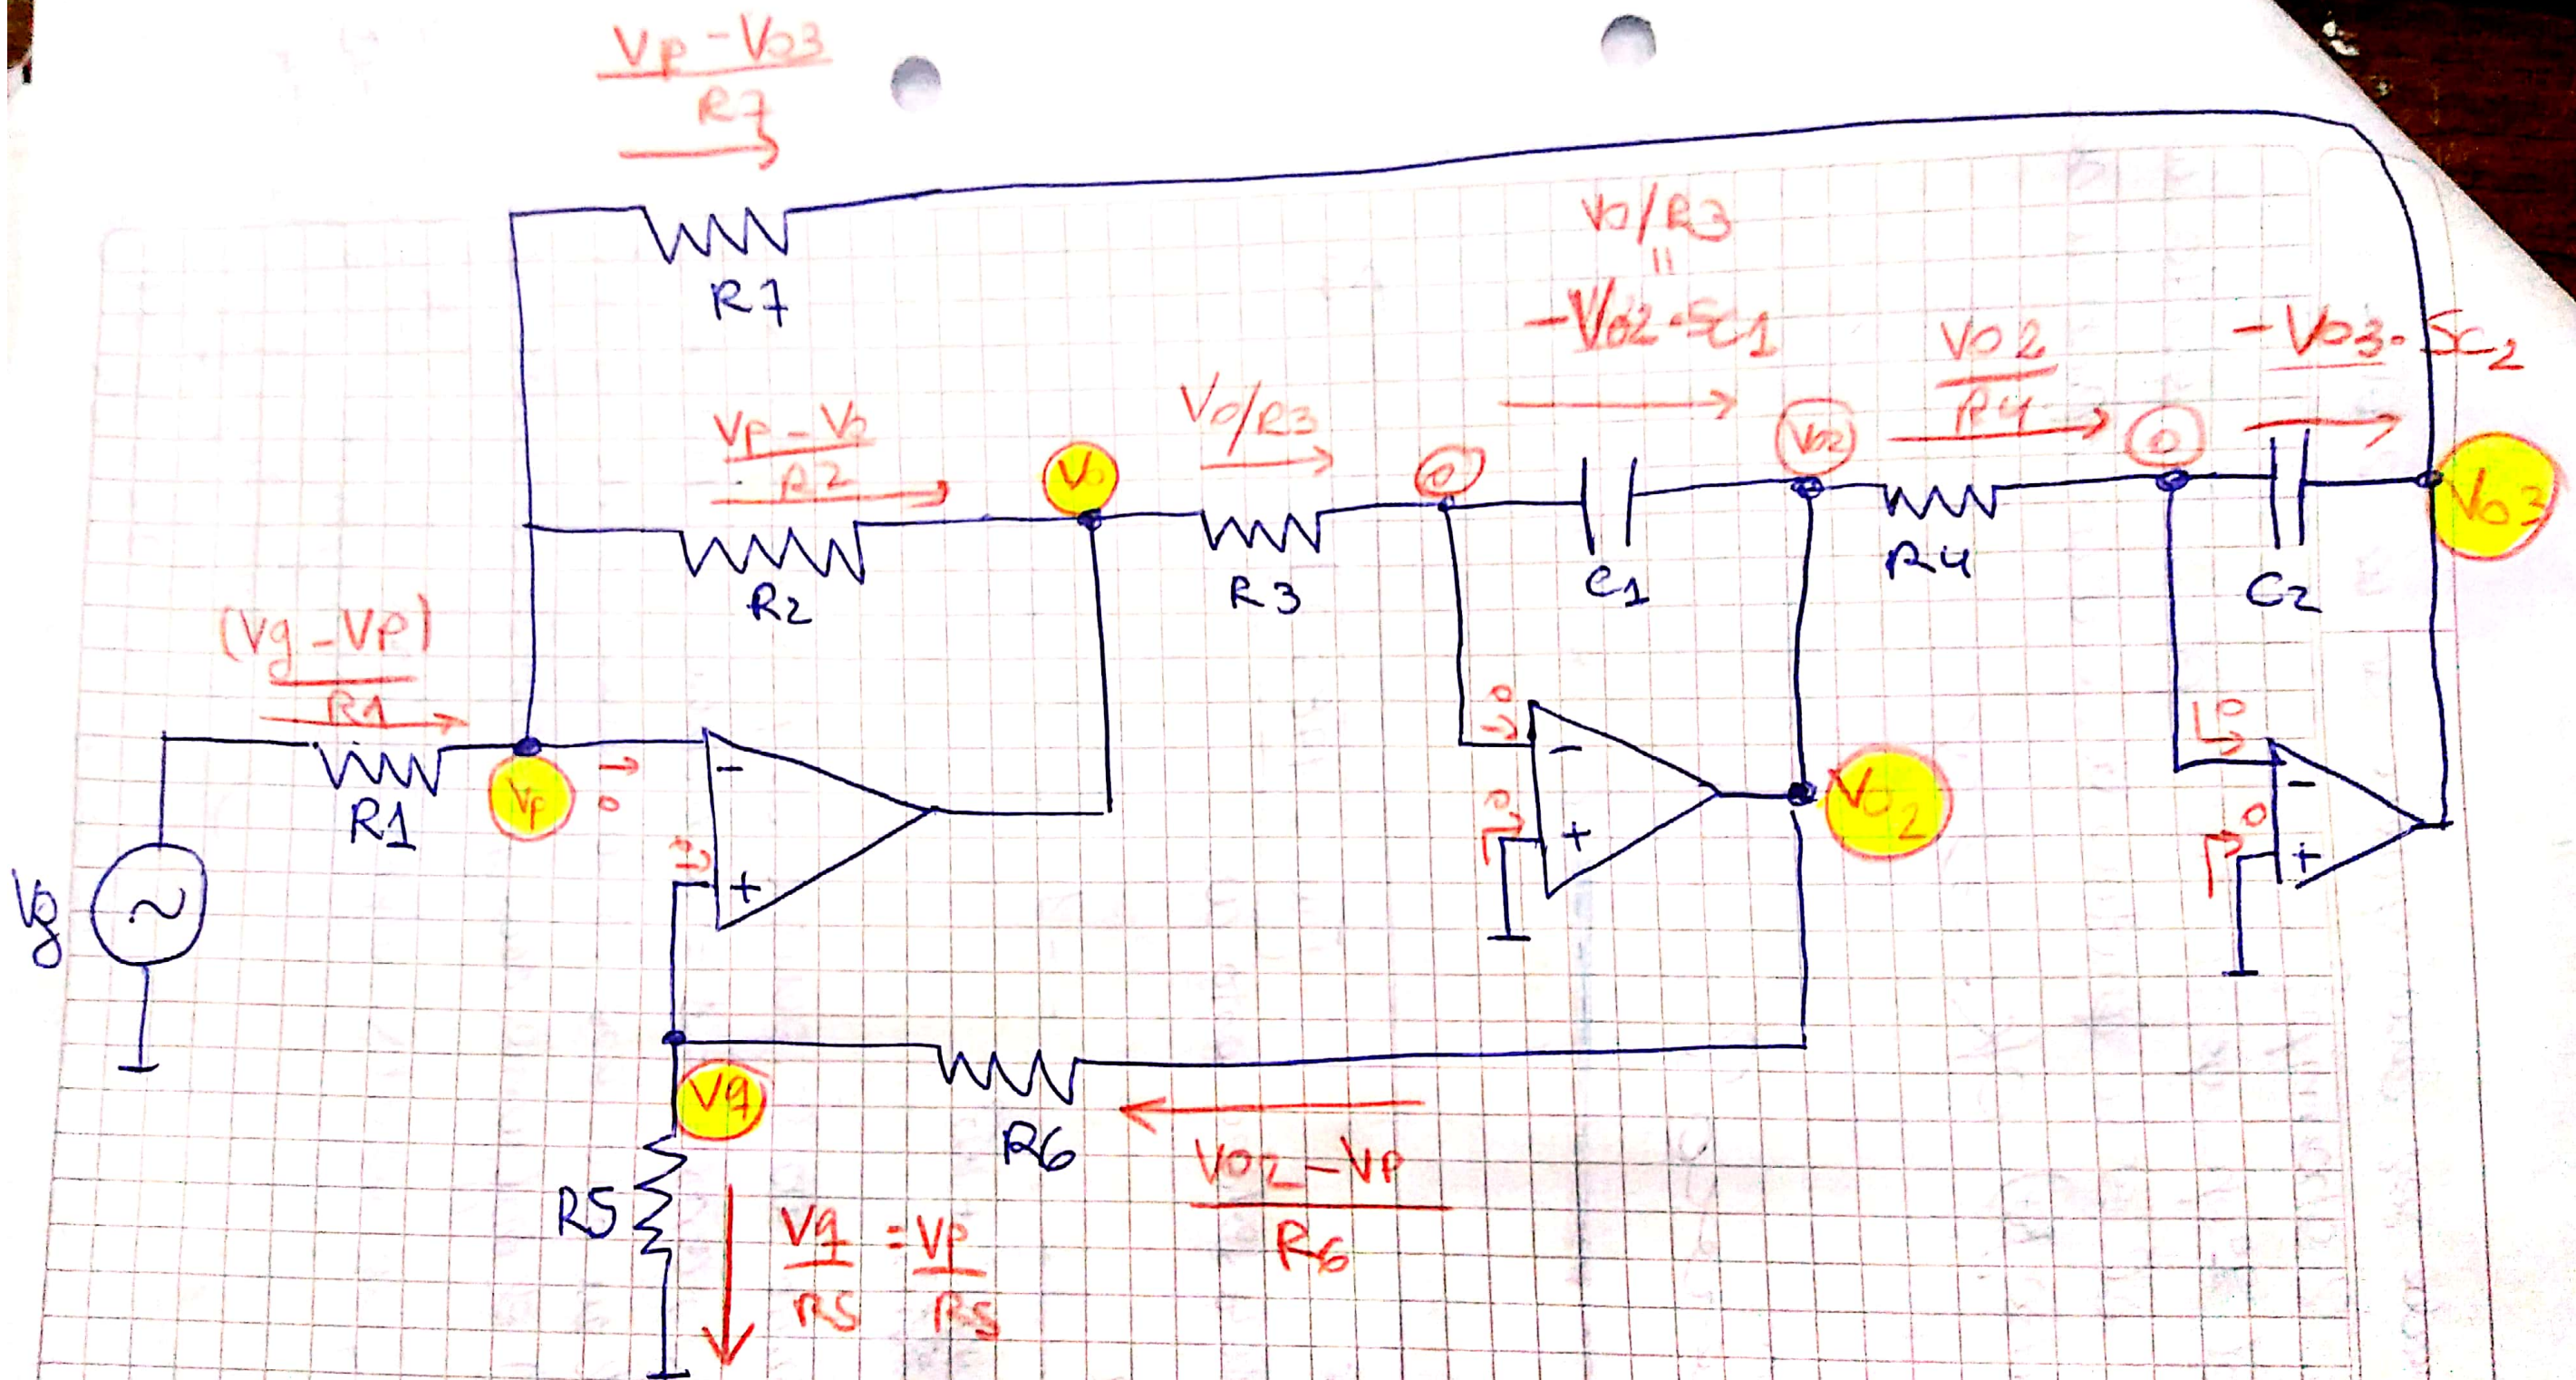 Vp - Vo3
R7
R7
Vo/R3
=
-Vo2·SC1
Vo2
R4
-Vo3·SC2
Vp - Vo
R2
Vo
Vo/R3
0
Vo2
0
Vo3
R2
R3
C1
R4
C2
(Vg - Vp)
R1
R1
Vp
0
-
+
0
-
0
+
Vo2
0
-
0
+
Vg
~
Vq
R6
Vo2 - Vp
R6
R5
Vq = Vp
R5 R5